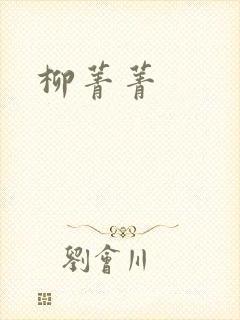 柳菁菁
劉會川